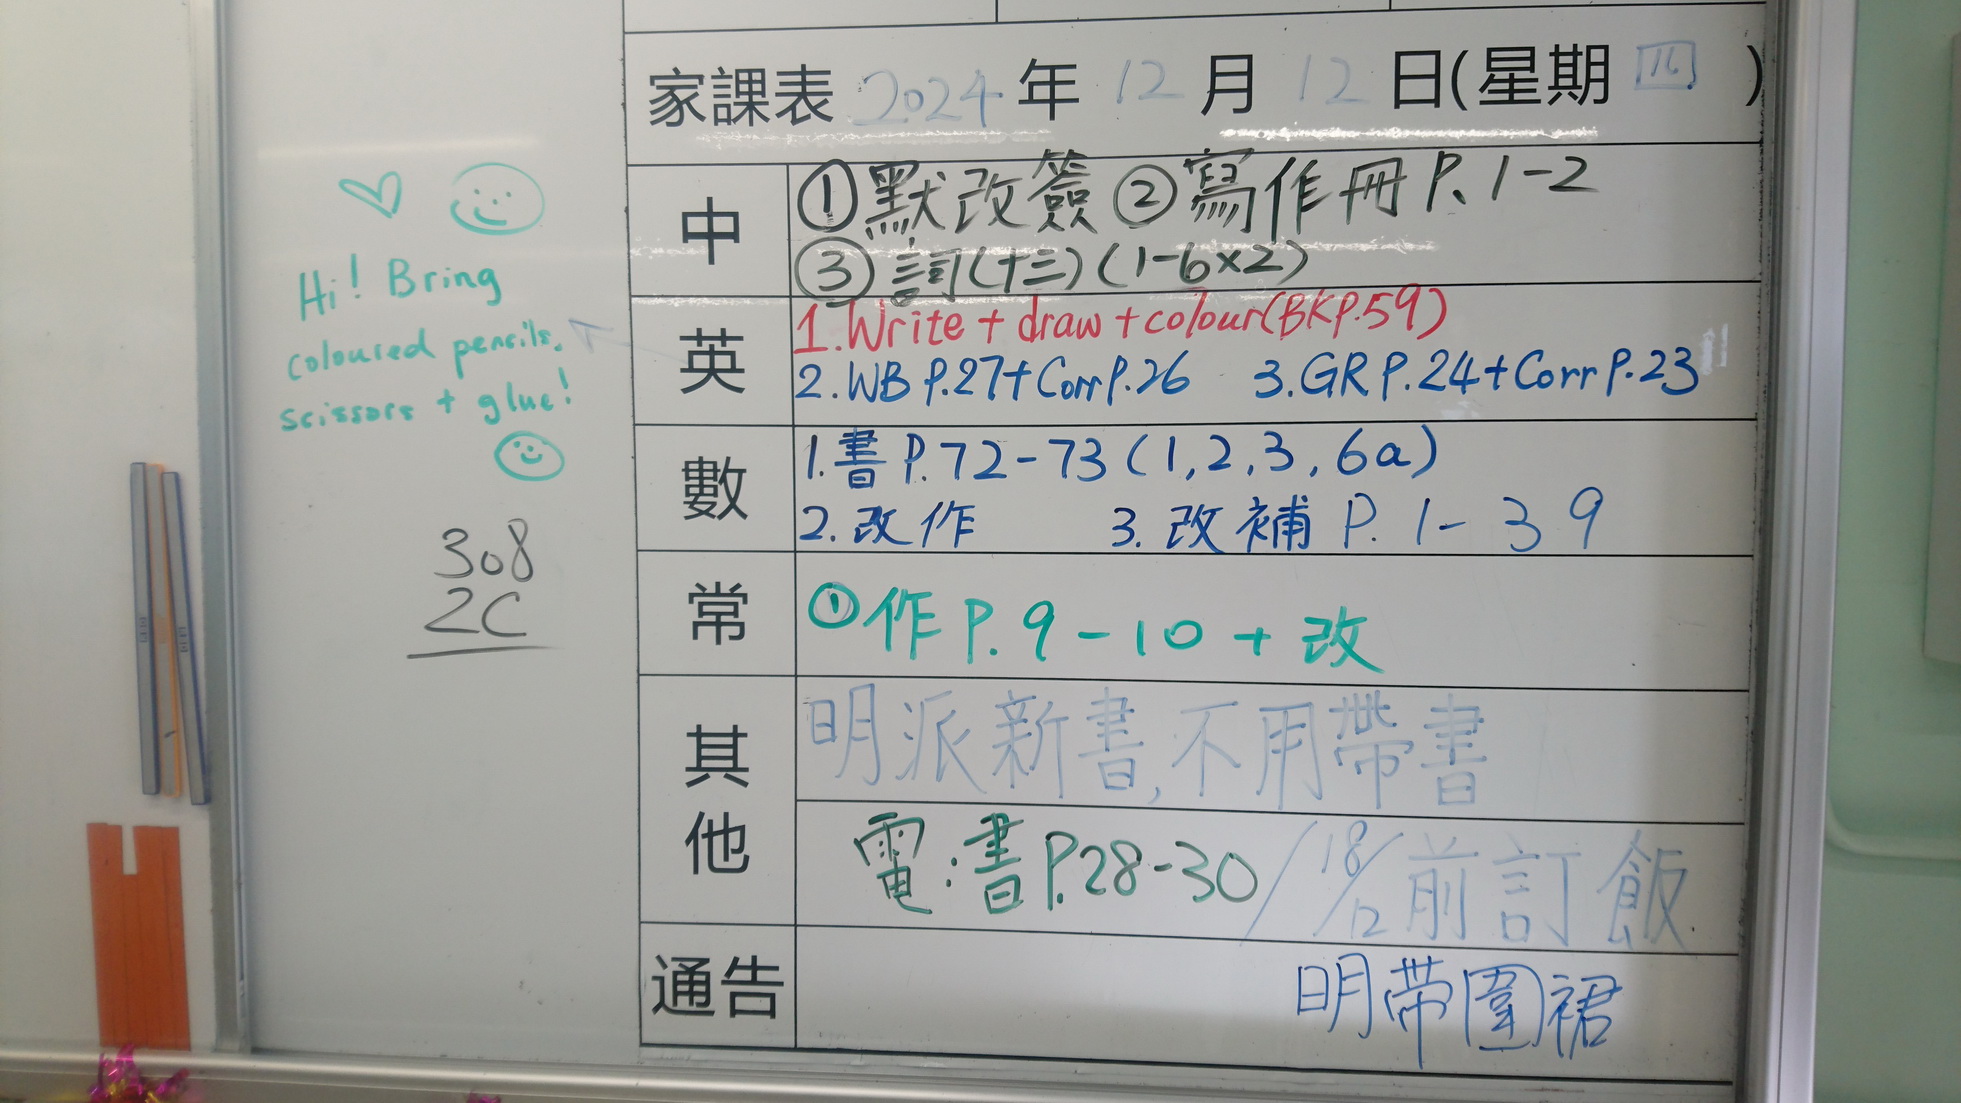 家課表 2024 年 12 月 12 日(星期 四 )
中
①默改簽 ②寫作冊 P. 1-2
③訂(十三)(1-6×2)
英
1. Write + draw + colour (BK P.59)
2. WB P.27 + Corr P.26 3. GR P.24 + Corr P.23
數
1. 書 P. 72-73 (1, 2, 3, 6a)
2. 改作 3. 改補 P. 1-39
常
①作 P. 9-10 + 改
其他
明派新書, 不用帶書
電:書 P.28-30 / 18/12 前訂飯
通告
明帶圍裙
Hi! Bring
coloured pencils,
scissors + glue!
308
2C